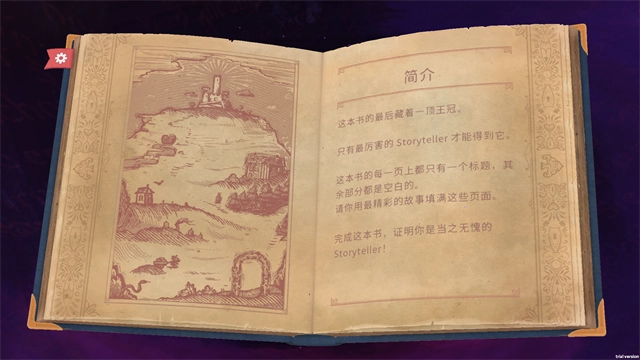 简介
这本书的最后藏着一顶王冠。
只有最厉害的 Storyteller 才能得到它。
这本书的每一页上都只有一个标题，其
余部分都是空白的。
请你用最精彩的故事填满这些页面。
完成这本书，证明你是当之无愧的
Storyteller！
trial version